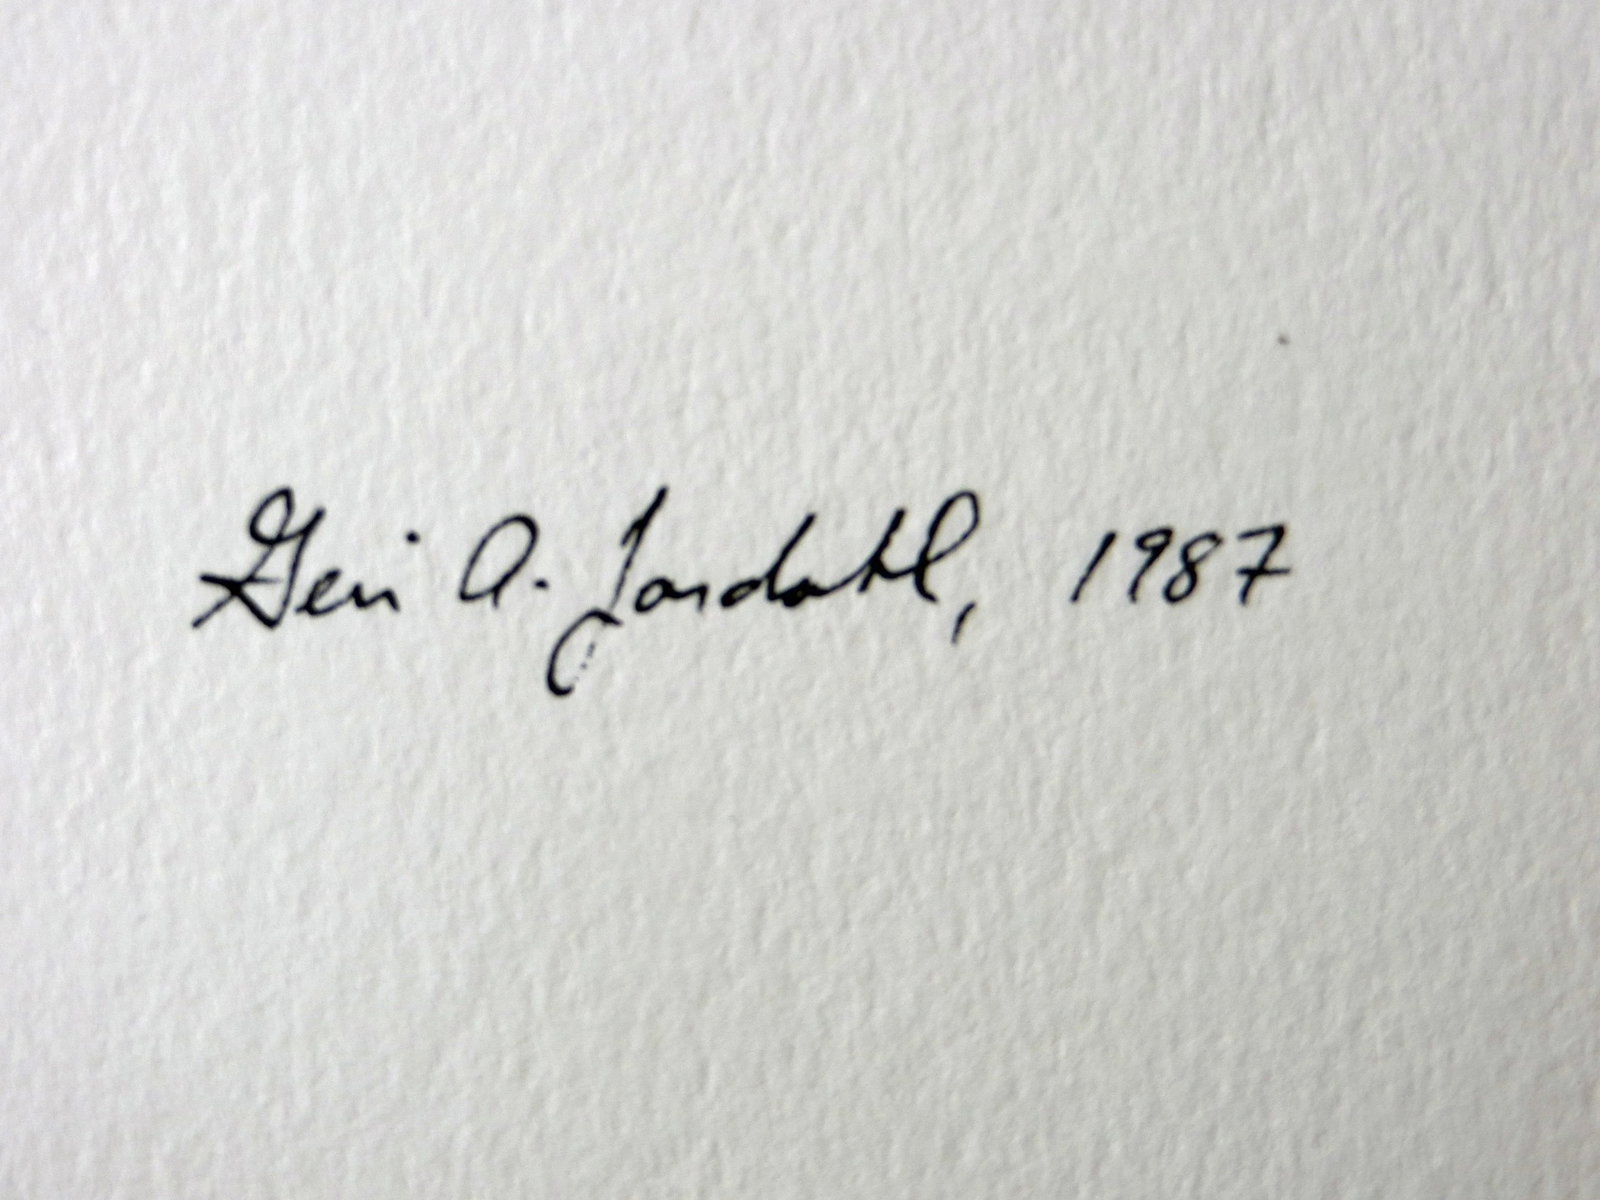 Geri A. Jordahl, 1987